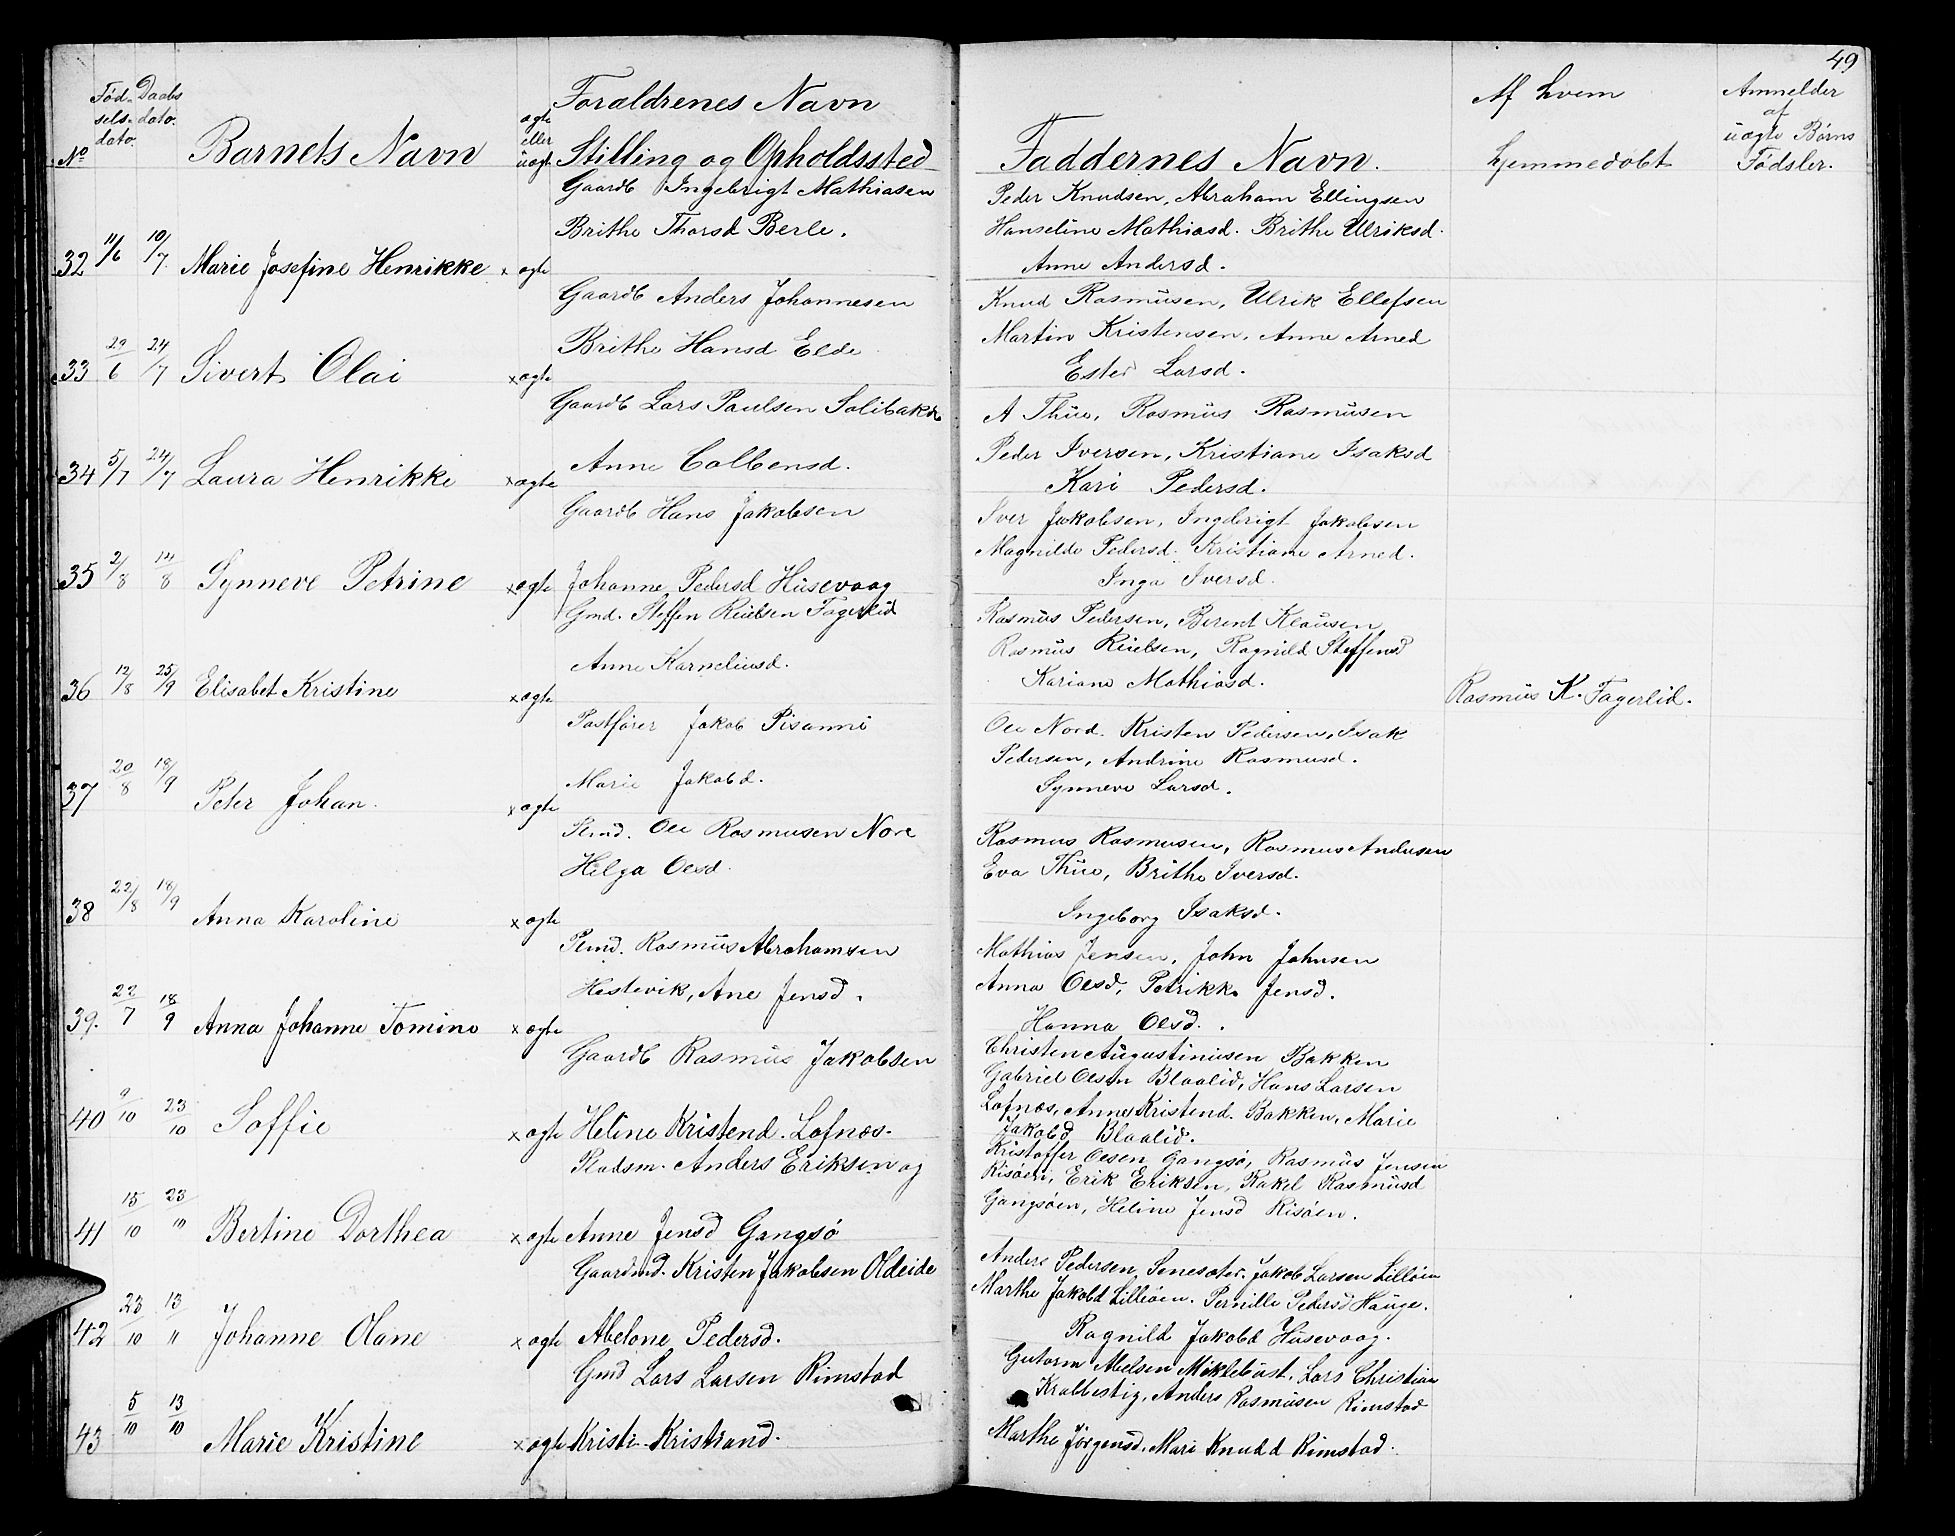 49
Fød-
sels-
dato.
Daabs
dato.
No
Barnets Navn
ægte
eller
uægte
Forældrenes Navn
Stilling og Opholdssted
Faddernes Navn.
Af hvem
hjemmedøbt
Anmelder
af
uægte Børns
Fødsler.
32 11/6 10/7 Marie Josefine Henrikke x ægte
Gaardb Ingebrigt Mathiasen
Brithe Thorsd Berle.
Peder Knudsen, Abraham Ellingsen
Hanseline Mathiasd. Brithe Ulriksd.
Anne Andersd.
33 29/6 24/7 Sivert Olai x ægte
Gaardb Anders Johannesen
Brithe Hansd Elde
Knud Rasmusen, Ulrik Ellefsen
Martin Kristensen, Anne Arned
Ester Larsd.
34 5/7 24/7 Laura Henrikke x ægte
Gaardb Lars Paulsen Solibakke
Anne Colbensd.
A Thue, Rasmus Rasmusen
Peder Iversen, Kristiane Isaksd
Kari Pedersd.
35 2/8 14/8 Synneve Petrine x ægte
Gaardb Hans Jakobsen
Johanne Pedersd Husevaag
Iver Jakobsen, Ingebrigt Jakobsen
Magnilde Pedersd. Kristiane Arned.
Inga Iversd.
36 12/8 25/9 Elisabet Kristine x ægte
Gmd. Steffen Reielsen Fagerlid
Anne Karneliusd.
Rasmus Pedersen, Berent Klausen
Rasmus Reielsen, Ragnild Steffensd
Kariane Mathiasd.
Rasmus K. Fagerlid.
37 20/8 18/9 Peter Johan. x ægte
Postfører Jakob Pisanni
Marie Jakobd.
Ole Nord. Kristen Pedersen, Isak
Pedersen, Andrine Rasmusd.
Synneve Larsd.
38 22/8 18/9 Anna Karoline x ægte
Pmd. Ole Rasmusen Nore
Helga Olesd.
Rasmus Rasmusen, Rasmus Andersen
Eva Thue, Brithe Iversd.
Ingeborg Isaksd.
39. 22/7 18/9 Anna Johanne Tomine x ægte
Plmd. Rasmus Abrahamsen
Hestevik, Ane Jensd.
Mathias Jensen, John Johnsen
Anna Olesd, Petrikke Jensd.
Hanna Olsd.
40 9/10 23/10 Soffie x ægte
Gaardb Rasmus Jakobsen
Heline Kristend. Lofnæs.
Christen Augustinusen Bakken
Gabriel Olsen Blaalid, Hans Larsen
Lofnæs, Anne Kristend. Bakken, Marie
Jakobd Blaalid.
41 15/10 23/10 Bertine Dorthea x ægte
Pladsm. Anders Eriksen og
Anne Jensd Gangsø
Kristoffer Olsen Gangsø, Rasmus Jensen
Risøen, Erik Eriksen, Rakel Rasmusd
Gangsøen, Heline Jensd Risøen.
42 23/10 13/11 Johanne Olane x ægte
Gaardmd. Kristen Jakobsen Oldeide
Abelone Pedersd.
Anders Pedersen, Senesæter. Jakob Larsen Lilløen
Marthe Jakobd Lilløen. Pernille Pedersd Hauge.
Ragnild Jakobd Husevaag.
43 5/10 13/10 Marie Kristine x ægte
Gmd Lars Larsen Rimstad
Kristi Kristiand.
Gutorm Abelsen Miklebust, Lars Christian
Krabbestig, Anders Rasmusen Rimstad
Marthe Jørgensd, Mari Knudd Rimstad.